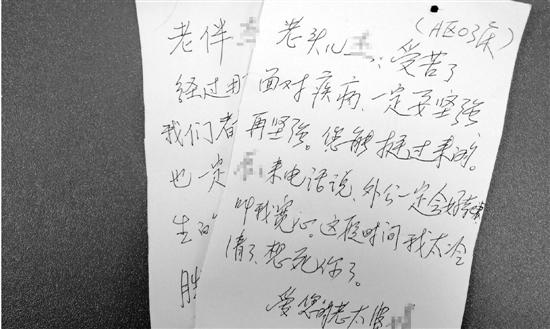 (A区03床)
老头儿:受苦了
面对疾病,一定要坚强
再坚强。您能挺过来的。
来电话说、外公一定会好起来
叫我宽心。这段时间我太冷
清了、想死你了。
爱您的老太婆
老伴
经过
我们都
也一定
生
胜